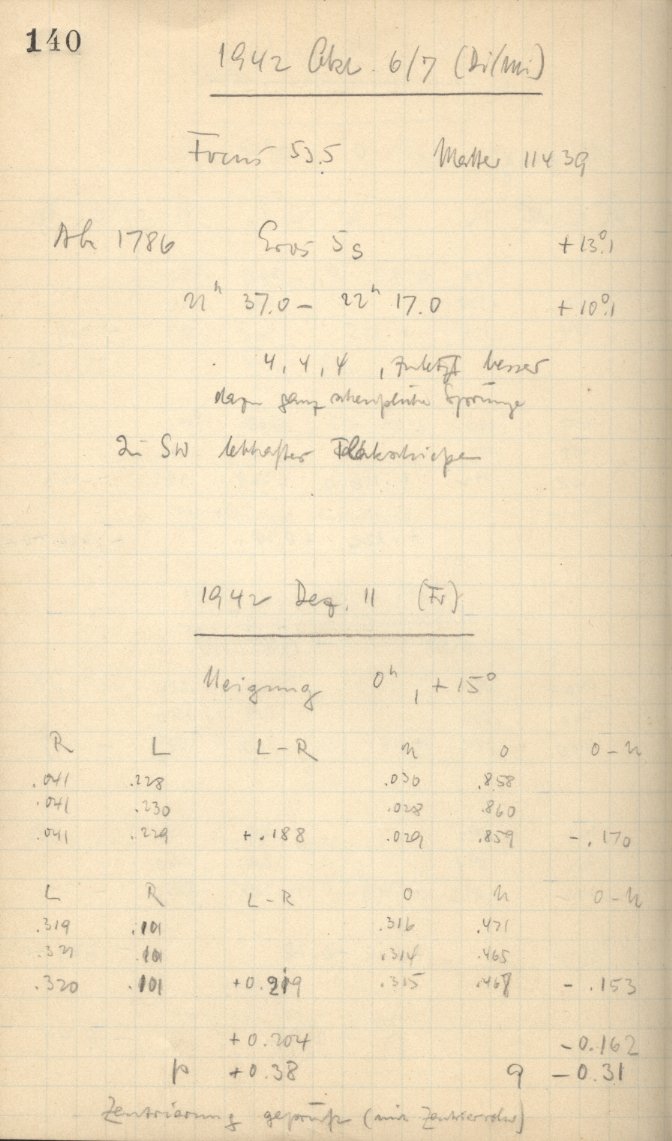 140
1942 Okt. 6/7 (Di/Mi)
Focus 53.5 Matter 11439
AK 1786 Eros 5s +13°.1
21ʰ 37.0 – 22ʰ 17.0 +10°.1
4, 4, 4 , zuletzt besser
dazu ganz scheußliche Sprünge
In SW lebhaftes Flakschießen
1942 Dez. 11 (Fr)
Neigung 0ʰ, +15°
R L L-R U O O-U
.041 .228 .030 .858
.041 .230 .028 .860
.041 .229 +.188 .029 .859 -.170
L R L-R O U O-U
.319 .101 .316 .471
.321 .101 .314 .465
.320 .101 +0.219 .315 .468 -.153
+0.204 -0.162
p +0.38 q -0.31
Zentrierung geprüft (mit Zentrierrohr)